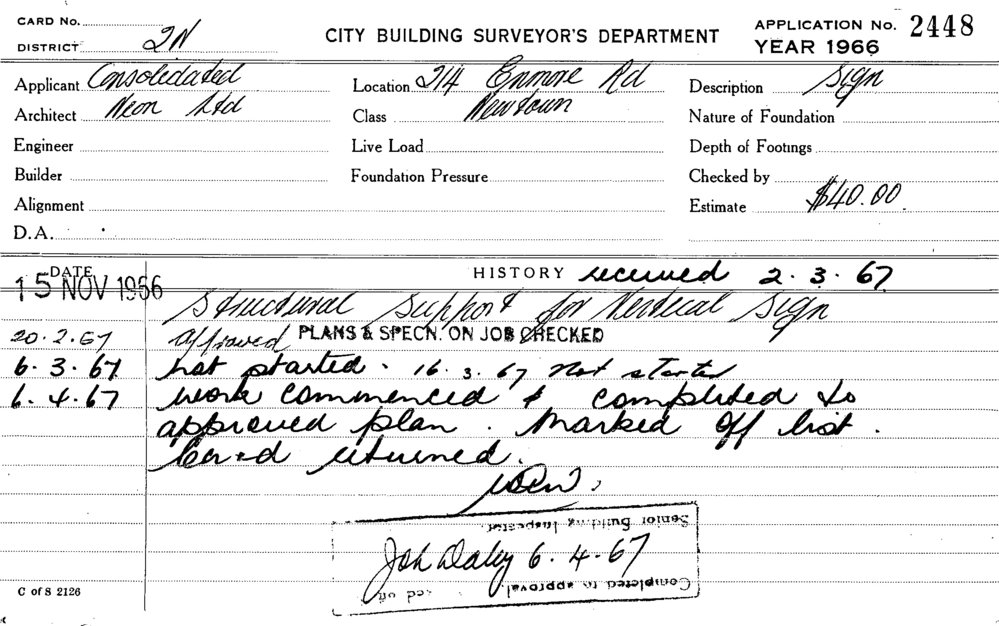 CARD No.
DISTRICT 2N
CITY BUILDING SURVEYOR'S DEPARTMENT
APPLICATION No. 2448
YEAR 1966
Applicant Consolidated
Architect Neon Ltd
Engineer
Builder
Alignment
D.A.
Location 214 Enmore Rd
Class Newtown
Live Load
Foundation Pressure
Description Sign
Nature of Foundation
Depth of Footings
Checked by
Estimate $40.00
DATE
HISTORY received 2.3.67
15 NOV 1966
Structural Support for Vertical Sign
20.2.67 Approved PLANS & SPECN. ON JOB CHECKED
6.3.67 Not started. 16.3.67 Not started
6.4.67 work commenced & completed to
approved plan. Marked off list.
Card returned.
Senior Building Inspector.
6.4.67
Completed to approval.
C of S 2126